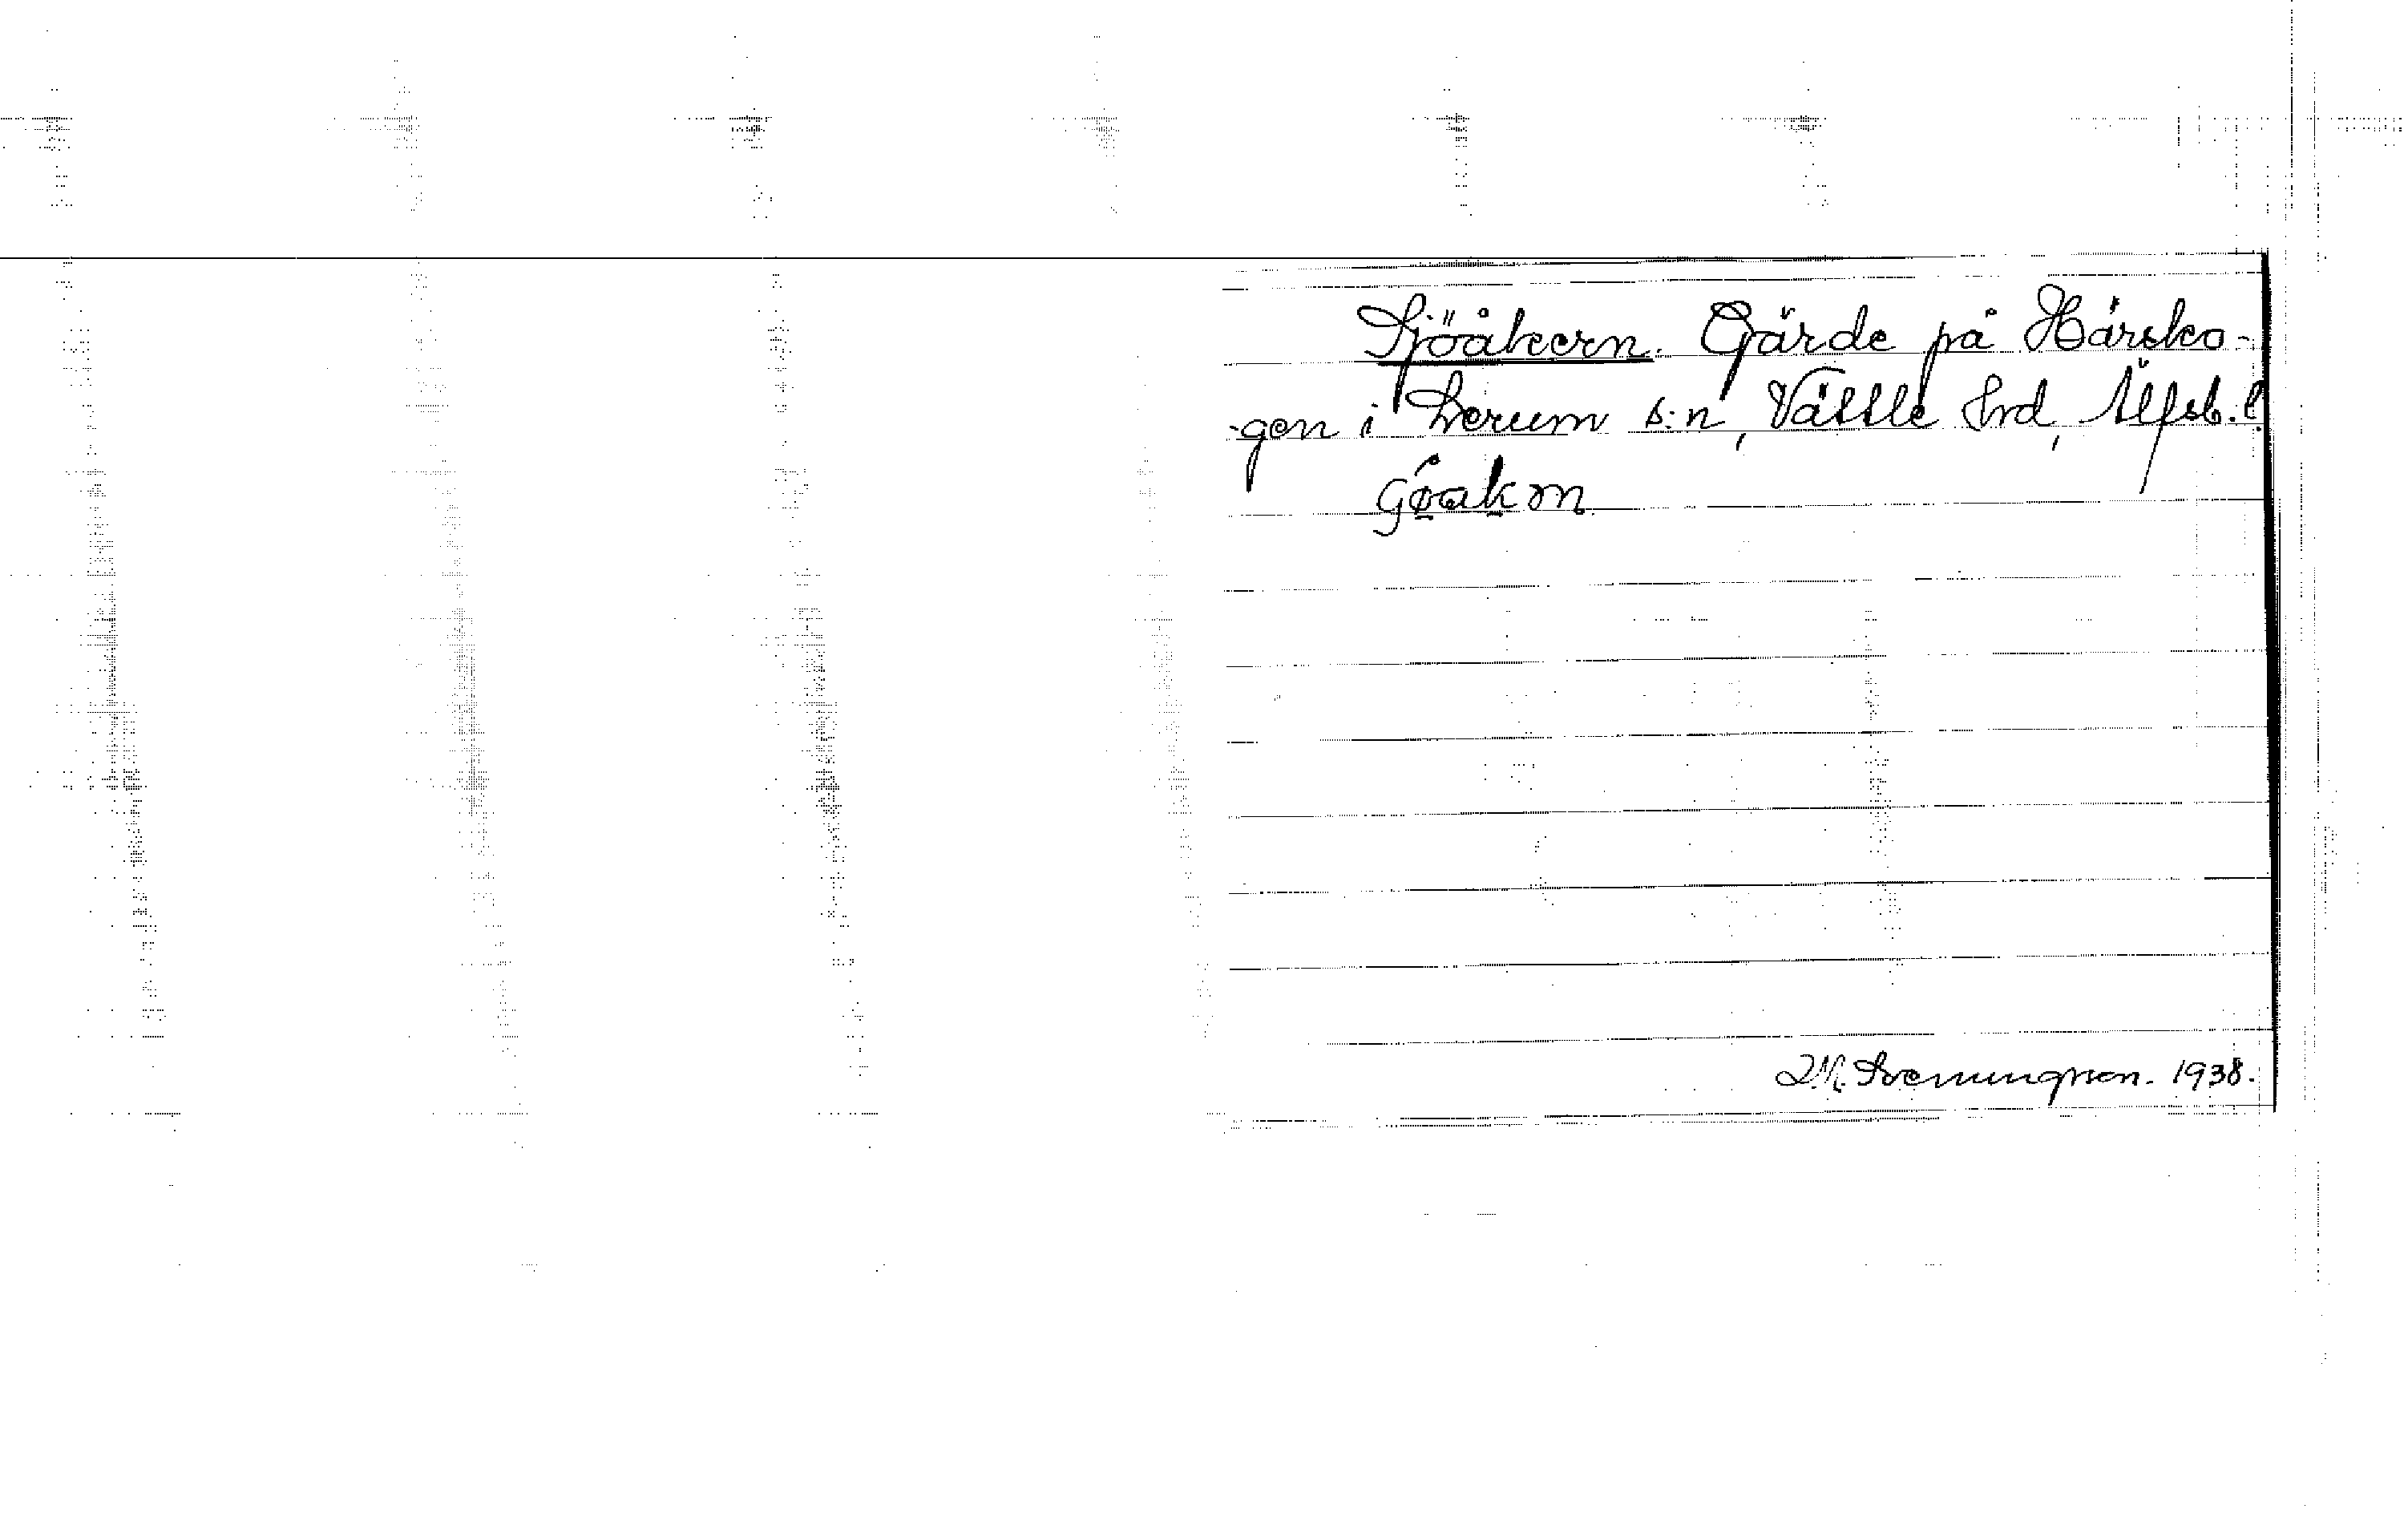 Sjöåkern. Gärde på Härsko-
-gen i Lerum s:n, Vättle Hrd, Älfsb. l.
M. Svenungsson. 1938.